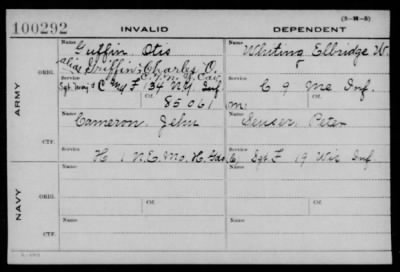 (3-H-5)
100292 INVALID DEPENDENT
ARMY
ORIG.
Name
Guffin Otis
alias Griffin, Charles O.
Service
Sgt Maj & C F 134 N.Y. Inf.
Ctf.
85061
Name
Whiting Elbridge W.
Service
C 9 Me Inf.
Ctf.
m.
CTF.
Name
Cameron, John
Service
H 1 N.E. Mo. H. Gds
Name
Senser, Peter
Service
Sgt F 19 Wis Inf.
NAVY
ORIG.
Name
Service
Ctf.
Name
Service
Ctf.
CTF.
Name
Name